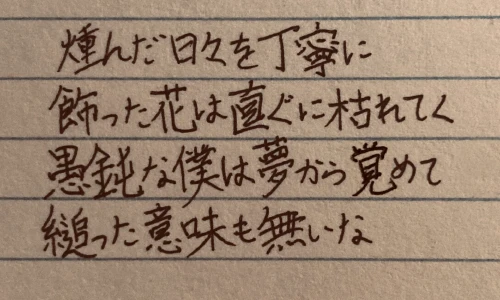 燻んだ日々を丁寧に
飾った花は直ぐに枯れてく
愚鈍な僕は夢から覚めて
縋った意味も無いな